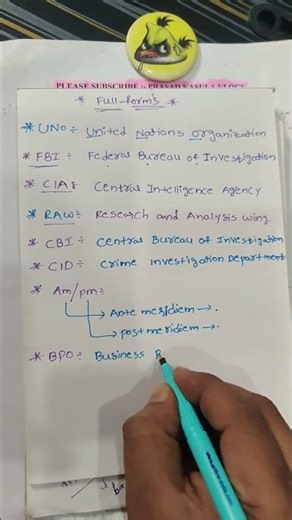 PLEASE SUBSCRIBE :- PRASAD KASULA VLOGS
* Full-form's *
* UNO ÷ United Nations Organization
* FBI ÷ Federal Bureau of Investigation
* CIA ÷ Central Intelligence Agency
* RAW ÷ Research and Analysis wing.
* CBI ÷ Central Bureau of Investigation
* CID ÷ Crime Investigation Department
* Am/pm ÷
→ Ante meridiem → .
→ post meridiem → .
* BPO ÷ Business P